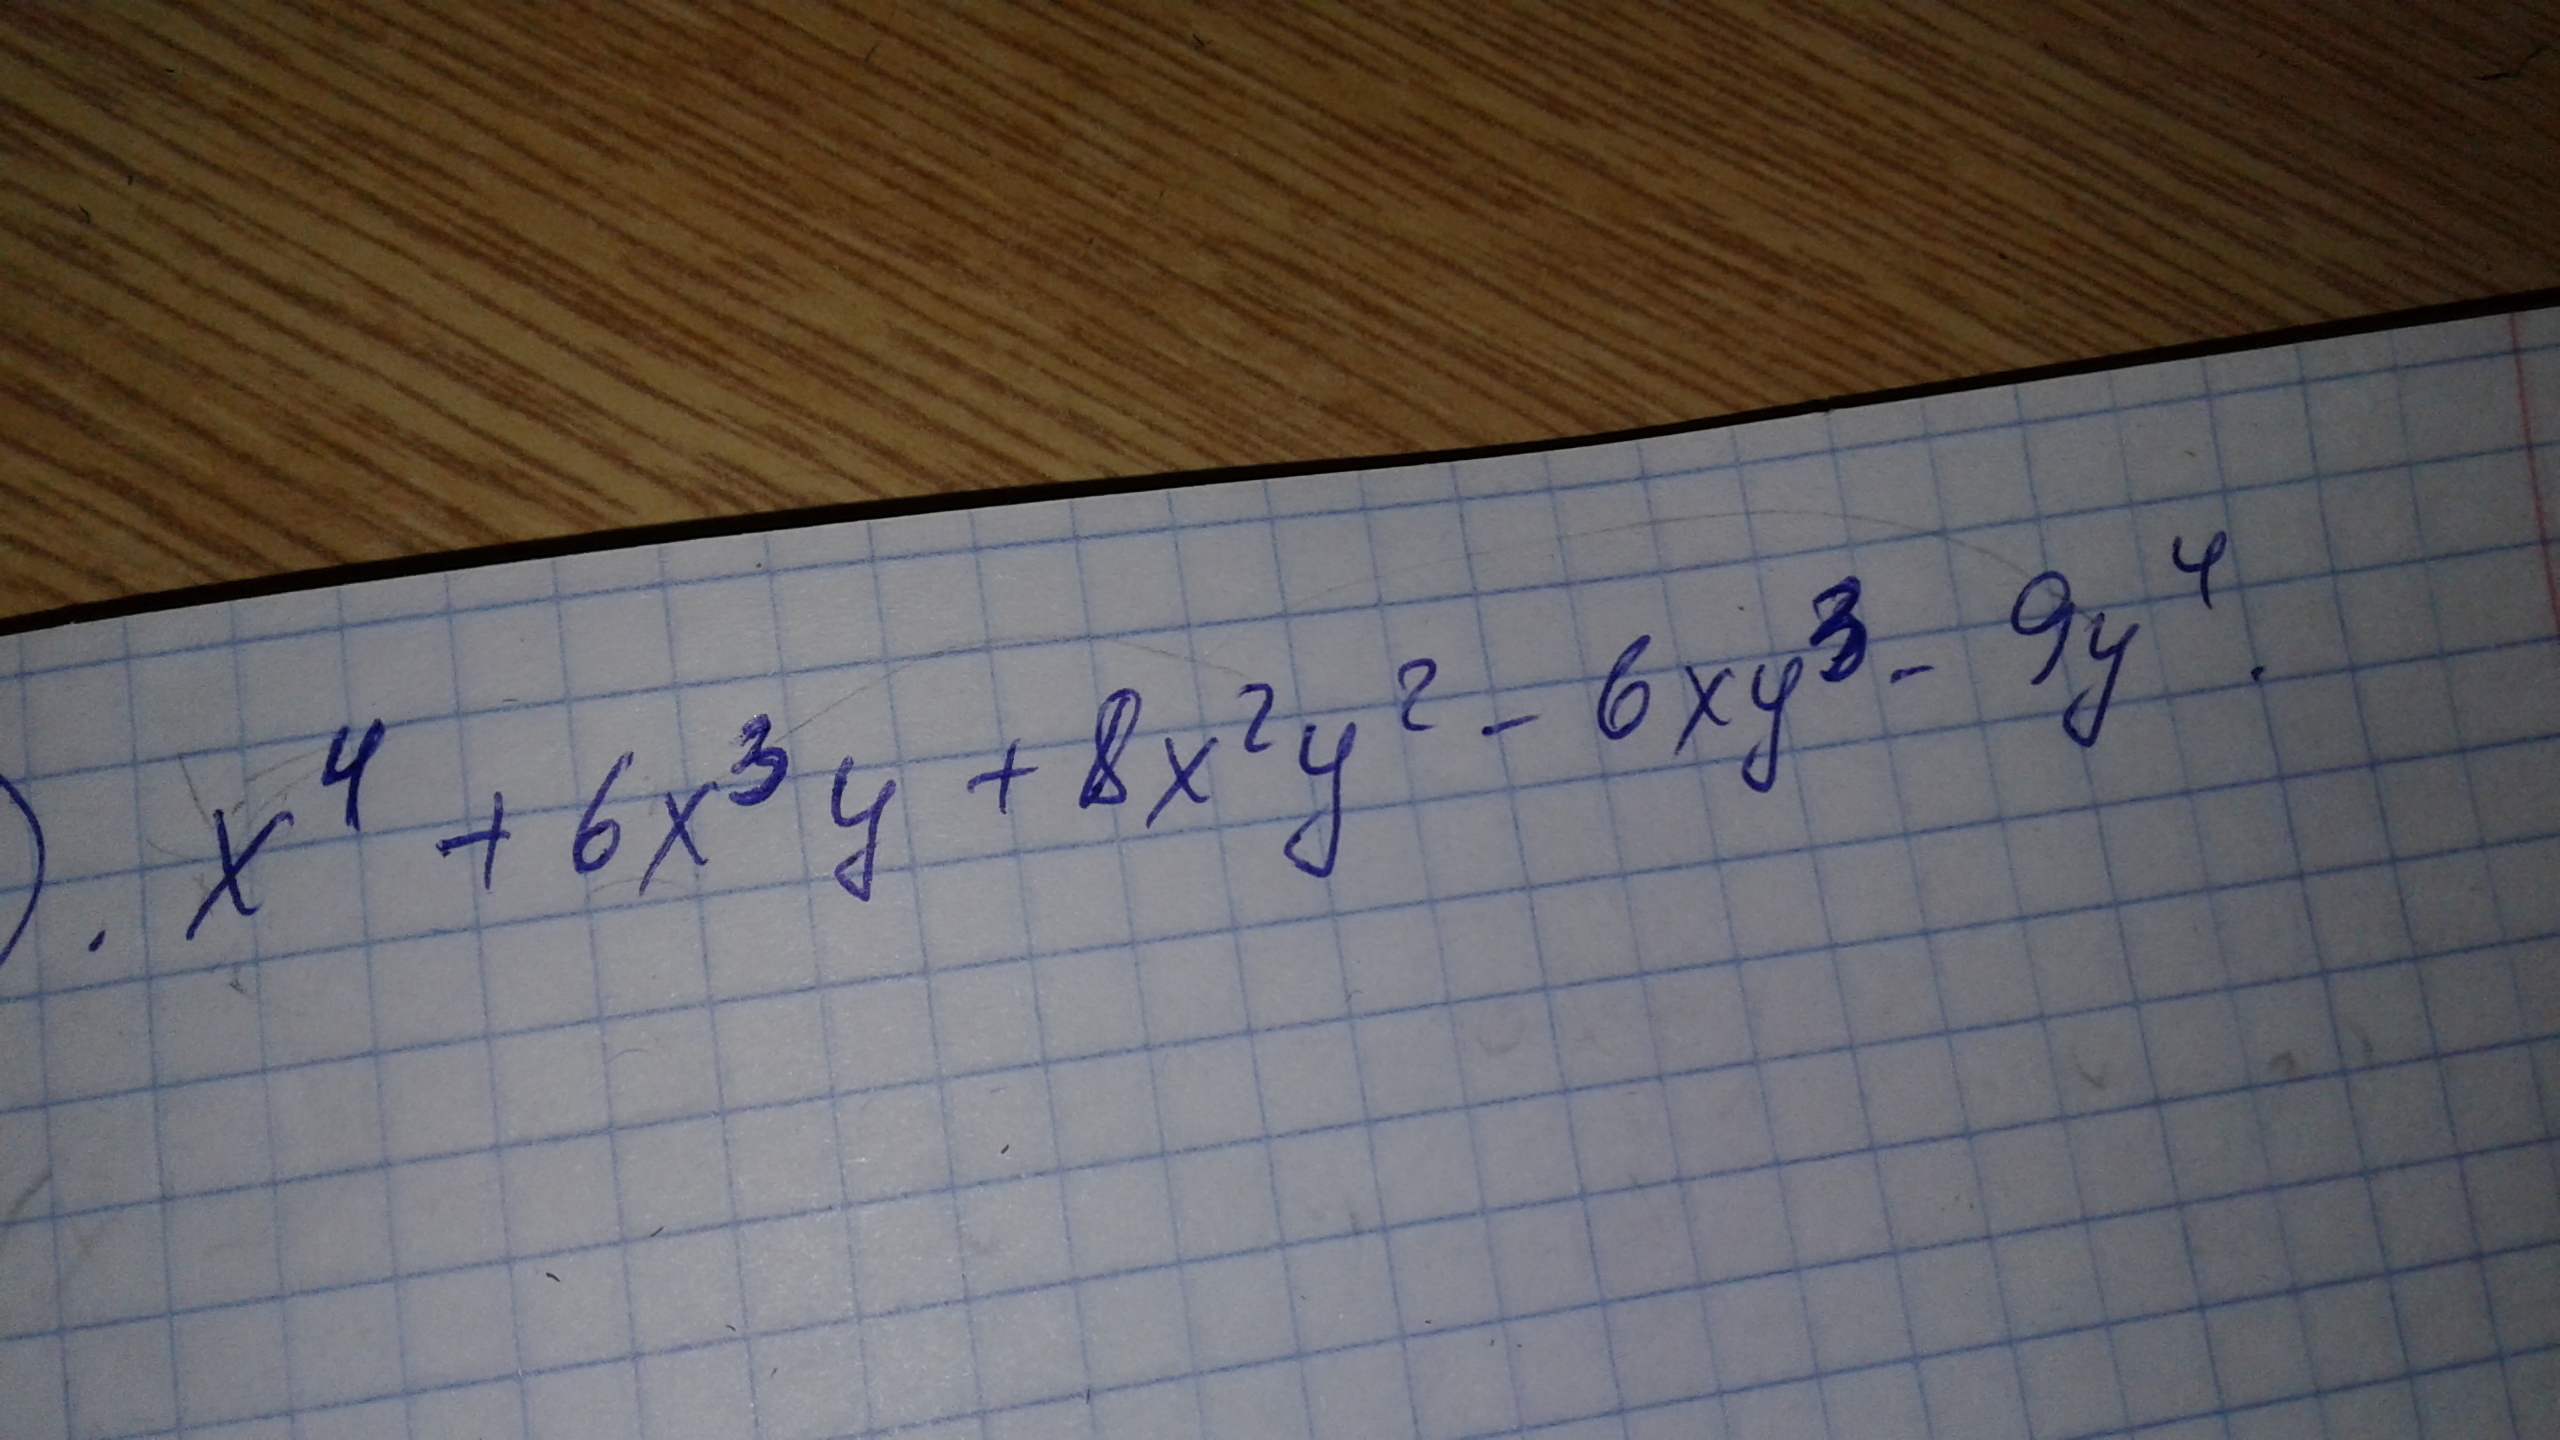 ). x⁴ + 6x³y + 8x²y² - 6xy³ - 9y⁴.